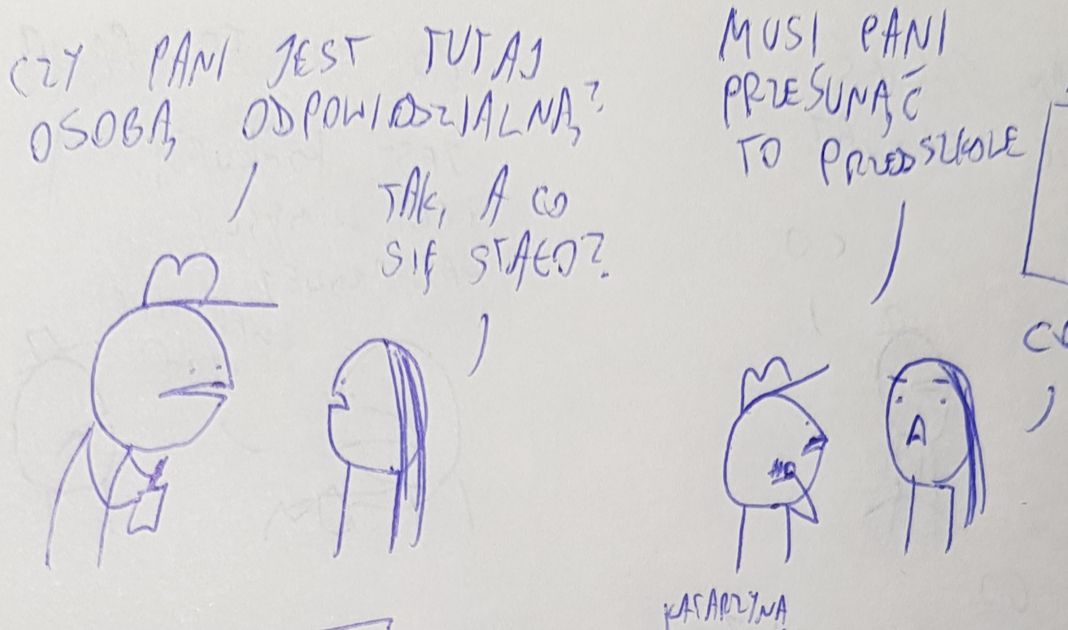 CZY PANI JEST TUTAJ
OSOBĄ ODPOWIDSZIALNĄ?
TAK, A CO
SIĘ STAŁO?
MUSI PANI
PRZESUNĄĆ
TO PRZEDSZKOLE
KATARZYNA